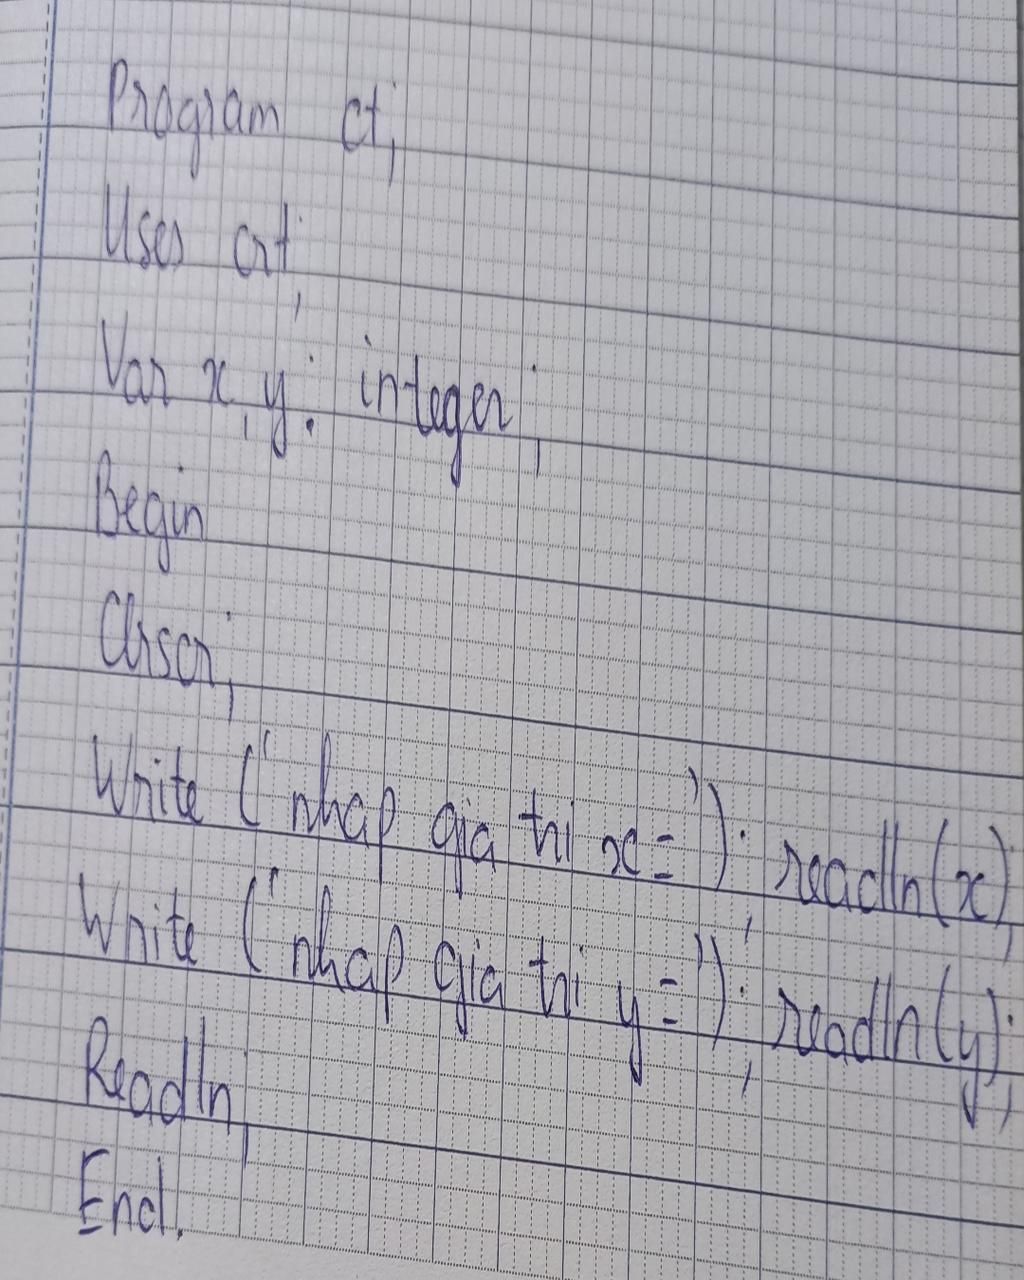 Program ct;
Uses crt;
Var x,y: integer;
Begin
Clrscr;
Write ('nhap gia tri x='); readln(x);
Write ('nhap gia tri y='); readln(y);
Readln;
End.